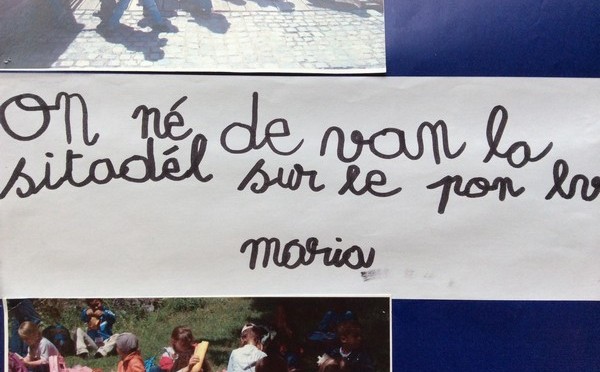 On né de van la
sitadél sur le pon
maria